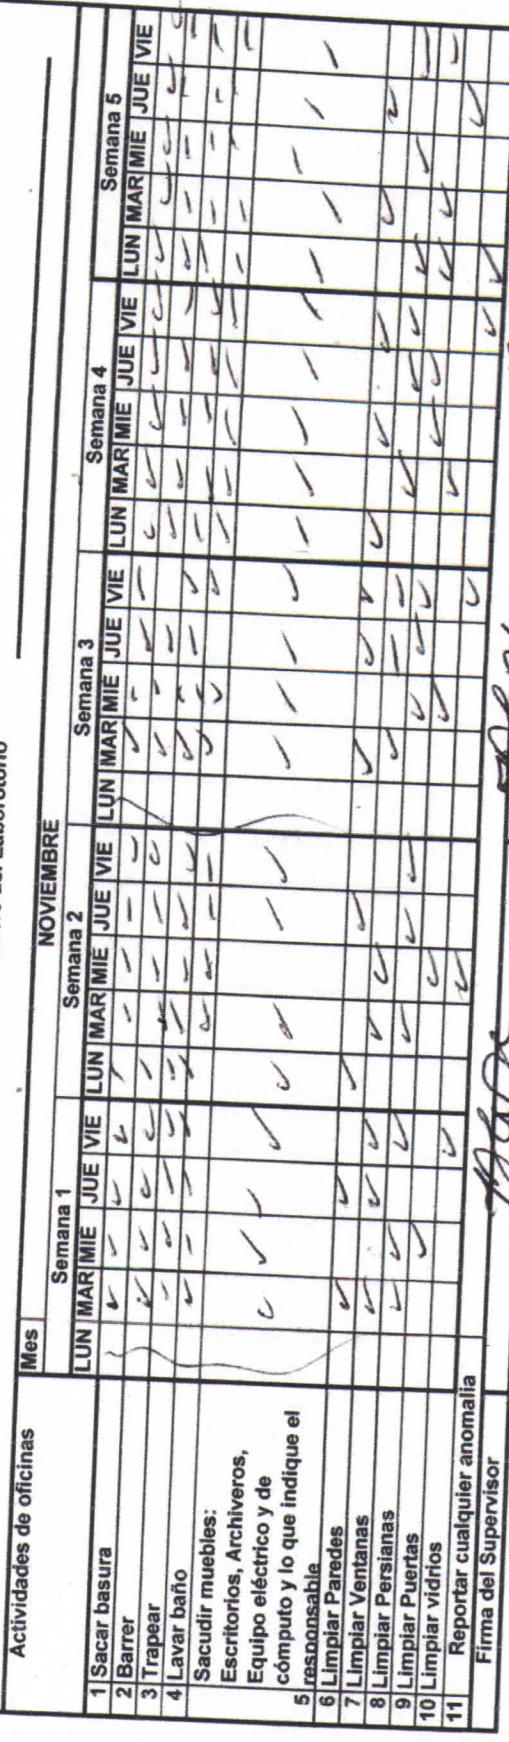 Actividades de oficinas
Mes
NOVIEMBRE
Semana 1 Semana 2 Semana 3 Semana 4 Semana 5
LUN MAR MIE JUE VIE LUN MAR MIE JUE VIE LUN MAR MIE JUE VIE LUN MAR MIE JUE VIE LUN MAR MIE JUE VIE
1 Sacar basura
2 Barrer
3 Trapear
4 Lavar baño
Sacudir muebles:
Escritorios, Archiveros,
Equipo eléctrico y de
cómputo y lo que indique el
5 responsable
6 Limpiar Paredes
7 Limpiar Ventanas
8 Limpiar Persianas
9 Limpiar Puertas
10 Limpiar vidrios
11 Reportar cualquier anomalia
Firma del Supervisor